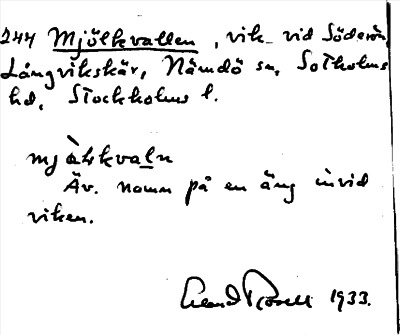 244 Mjölkvallen, vik vid Söderön,
Långvikskär, Nämdö sn, Sotholms
hd, Stockholms l.
Äv. namn på en äng invid
viken.
1933.